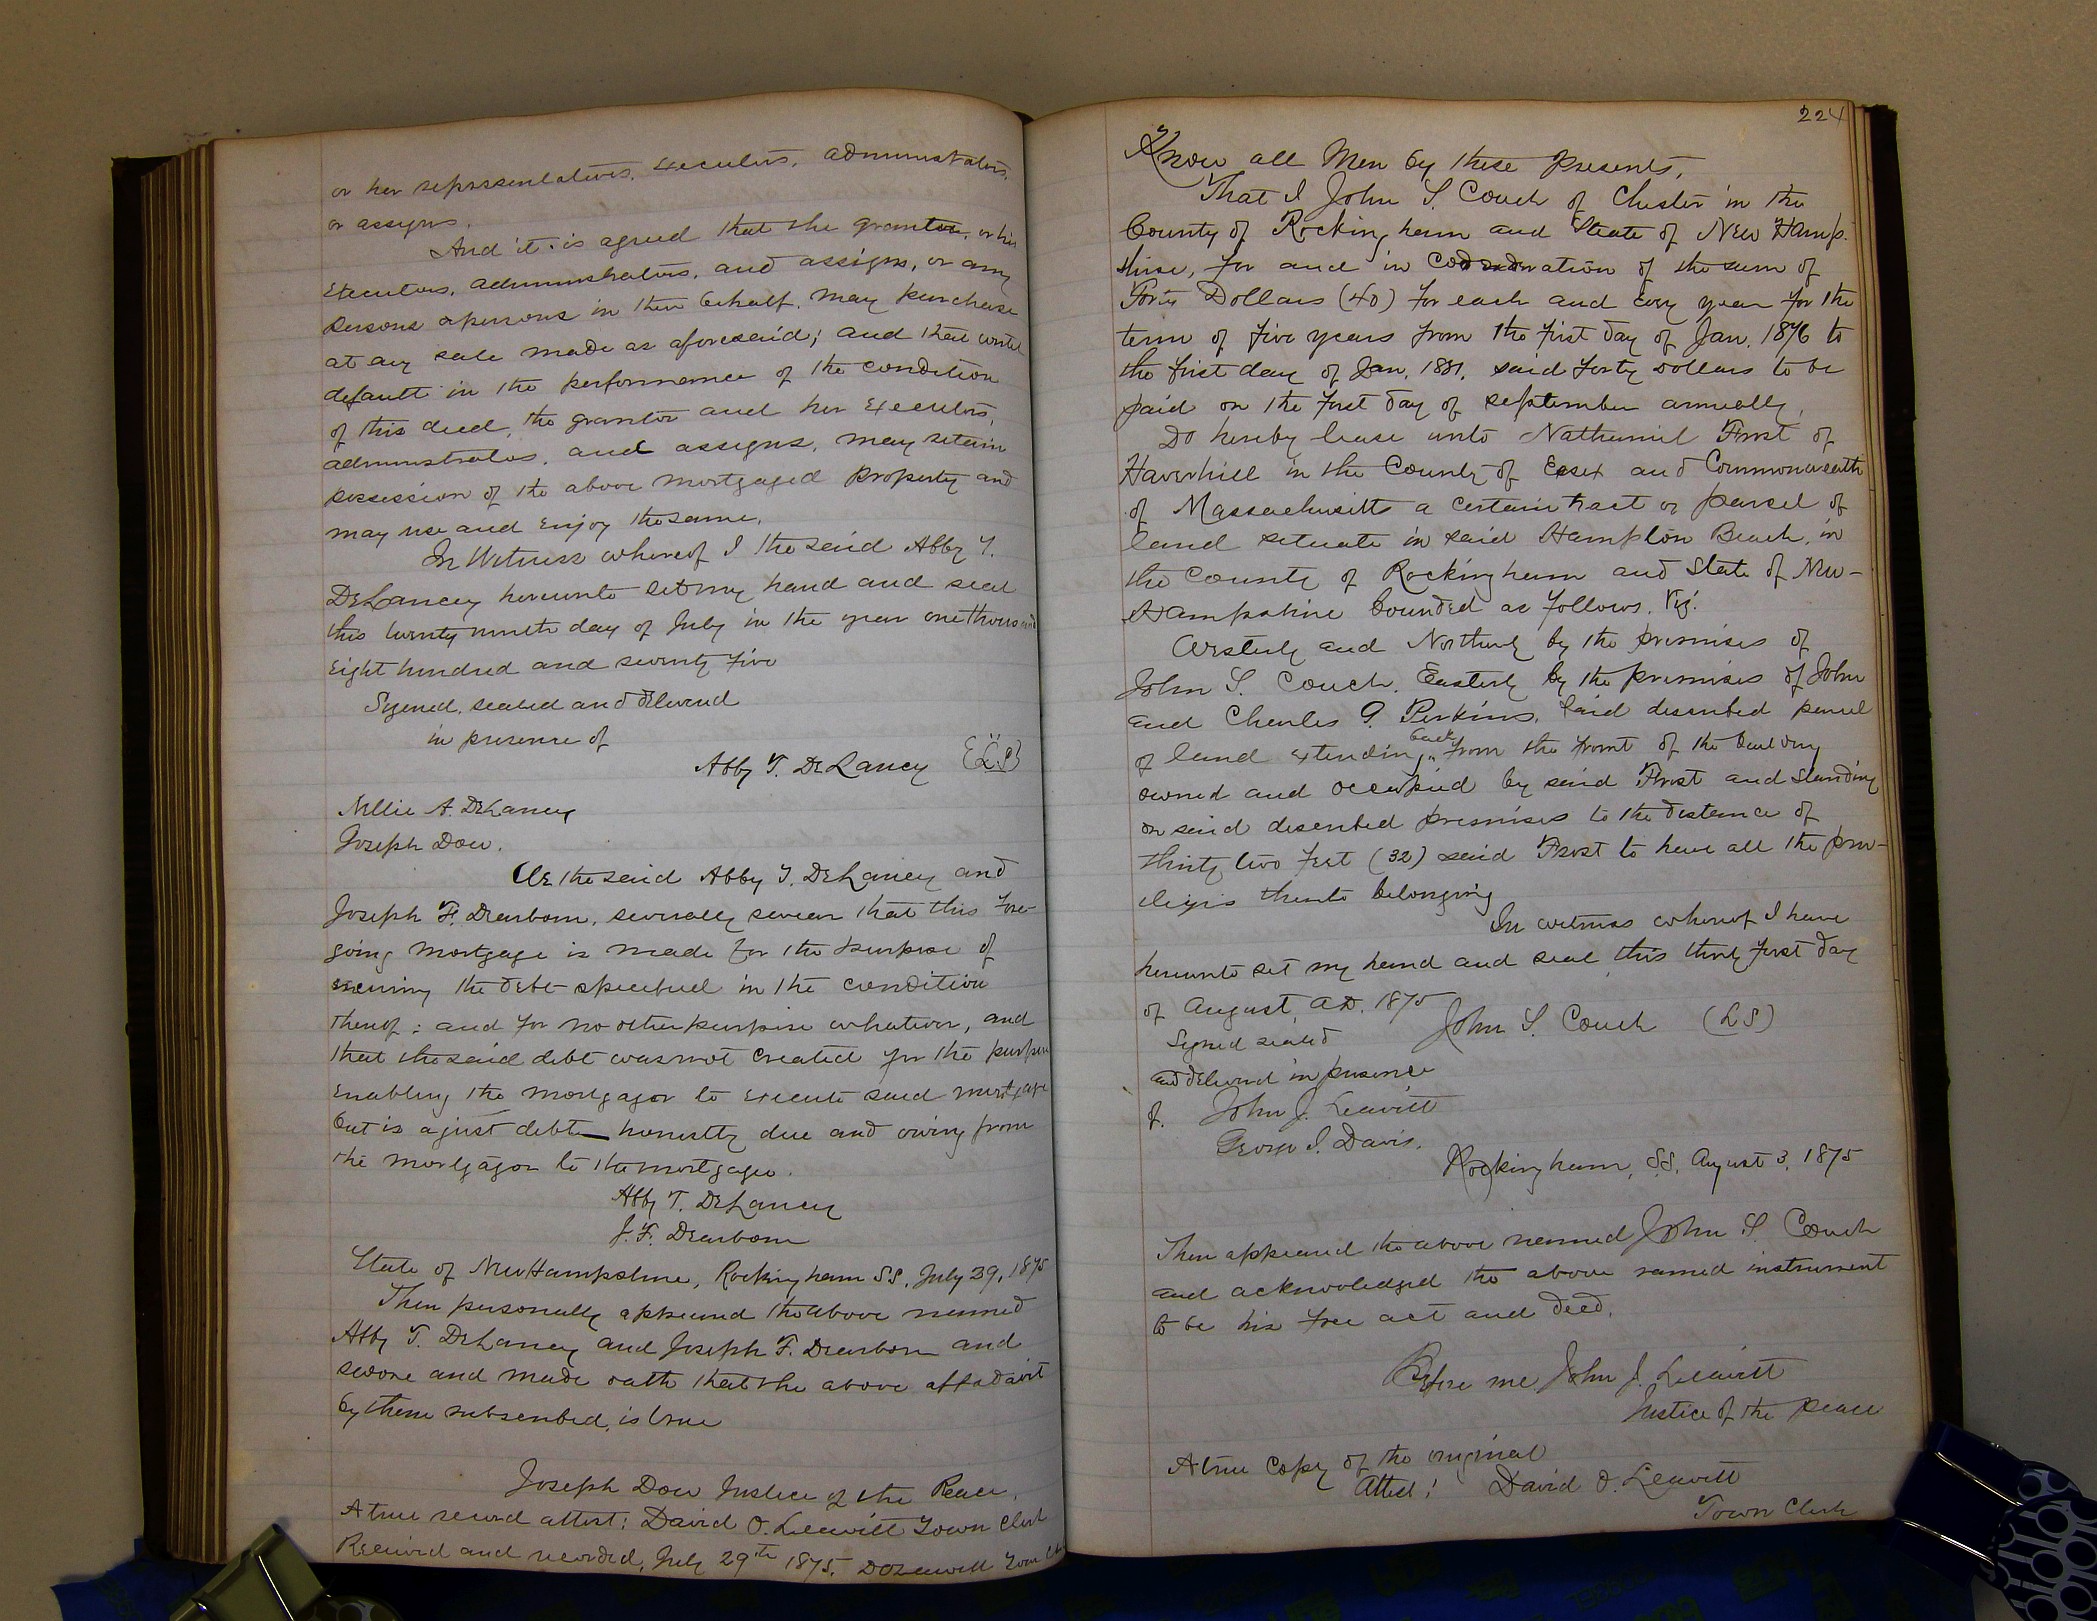 or her representatives, executors, administrators,
or assigns.
And it is agreed that the grantee, or his
executors, administrators, and assigns, or any
person or persons in their behalf, may purchase
at any sale made as aforesaid; and that until
default in the performance of the condition
of this deed, the grantor and her executors,
administrators, and assigns, may retain
possession of the above mortgaged property and
may use and enjoy the same.
In Witness whereof I the said Abby T.
DeLancey hereunto set my hand and seal
this twenty ninth day of July in the year one thousand
eight hundred and seventy five
Signed, sealed and delivered
in presence of
Abby T. DeLancey {L.S}
Nellie A. DeLancey
Joseph Dow.
We the said Abby T. DeLancey and
Joseph F. Dearborn, severally swear that this fore-
going mortgage is made for the purpose of
securing the debt specified in the condition
thereof; and for no other purpose whatever, and
that the said debt was not created for the purpose
enabling the mortgagor to execute said mortgage
but is a just debt honestly due and owing from
the mortgagor to the mortgagee.
Abby T. DeLancey
J. F. Dearborn
State of New Hampshire, Rockingham SS, July 29, 1875
Then personally appeared the above named
Abby T. DeLancey and Joseph F. Dearborn and
swore and made oath that the above affadavit
by them subscribed, is true
Joseph Dow Justice of the Peace.
A true record attest: David O. Leavitt Town Clerk
Received and recorded, July 29th 1875. D O Leavitt Town Clerk
224
Know all Men by these Presents,
That I John S. Couch of Chester in the
County of Rockingham and State of New Hamp-
shire, for and in consideration of the sum of
Forty Dollars (40) for each and every year for the
term of five years from the first day of Jan. 1876 to
the first day of Jan. 1881, said forty dollars to be
paid on the first day of September annually,
Do hereby lease unto Nathaniel Frost of
Haverhill in the County of Essex and Commonwealth
of Massachusetts a certain tract or parcel of
land situate in said Hampton Beach, in
the County of Rockingham and State of New-
Hampshire bounded as follows. Viz.
Westerly and Northerly by the premises of
John S. Couch. Easterly by the premises of John
and Charles G. Perkins. Said described parcel
of land extending back from the front of the building
owned and occupied by said Frost and standing
on said described premises to the distance of
thirty two feet (32) said Frost to have all the priv-
eliges thereto belonging
In witness whereof I have
hereunto set my hand and seal this thirty first day
of August, AD. 1875
John S. Couch (LS)
Signed sealed
and delivered in presence
of. John J. Leavitt
George I. Davis.
Rockingham, S.S. August 3, 1875
Then appeared the above named John S. Couch
and acknowledged the above named instrument
to be his free act and deed.
Before me John J. Leavitt
Justice of the peace
A true copy of the original
Attest: David O. Leavitt
Town Clerk